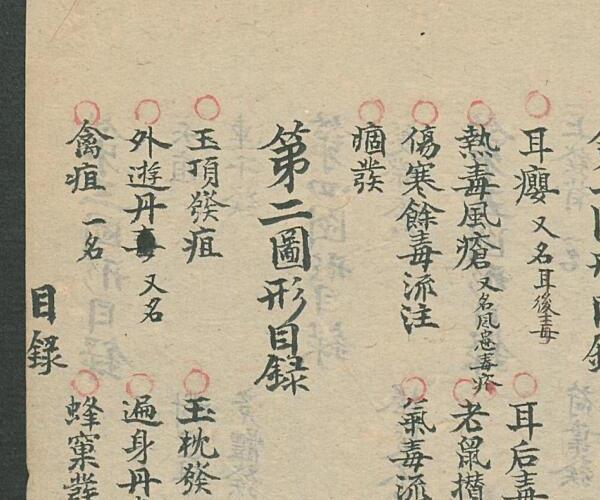 耳癭 又名耳後毒
耳后毒
熱毒風瘡 又名風惡毒疹
老鼠攢
傷寒餘毒流注
氣毒流
痼發
第二圖形目録
玉頂發疽
玉枕發
外遊丹毒 又名
遍身丹
禽疽 一名
蜂窠發
目録